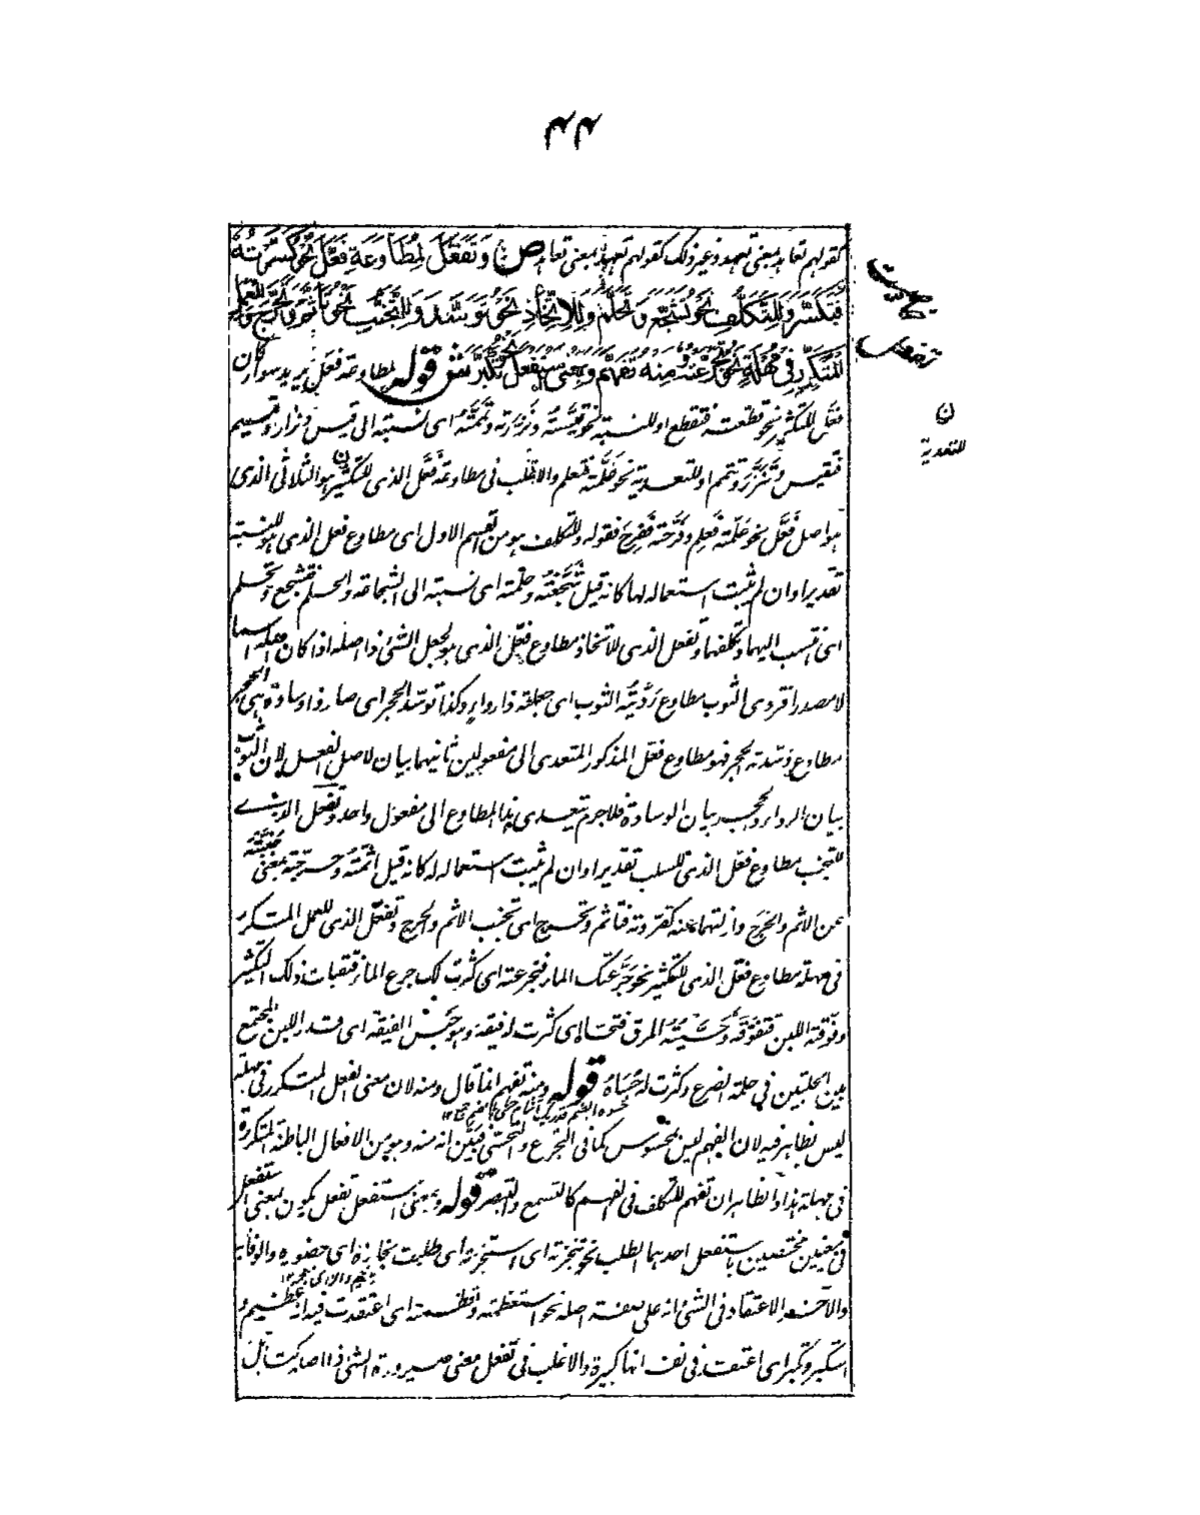 ۴۴
كقولهم تعاهد بمعنى تعهد وغير ذلك كقولهم تعهد بمعنى تعاهد ص وَتَفَعَّلَ لِمُطَاوَعَةِ فَعَّلَ نَحْوُ كَسَّرْتُهُ
فَتَكَسَّرَ وَلِلتَّكَلُّفِ نَحْوُ تَشَجَّعَ وَتَحَلَّمَ وَلِلاِتِّخَاذِ نَحْوُ تَوَسَّدَ وَلِلتَّجَنُّبِ نَحْوُ تَأَثَّمَ وَتَحَرَّجَ وَلِلْعَمَلِ
الْمُتَكَرِّرِ فِي مُهْلَةٍ نَحْوُ تَجَرَّعْتُهُ وَمِنْهُ تَفَهَّمَ وَبِمَعْنَى اسْتَفْعَلَ نَحْوُ تَكَبَّرَ ش قوله لمطاوعة فعل يريد سواء كان
فعل للتكثير نحو قطعته فتقطع او للنسبة نحو قيسته ونزرته وتممته اى نسبته الى قيس ونزار وتميم
فتقيس وتنزر وتتمم او للتعدية نحو علمته فتعلم والاغلب فى مطاوعة فعل الذى للتكثير هو الثلاثى الذى
هو اصل فعل نحو علمته فعلم وفرحته ففرح فقوله وللتكلف هو من القسم الاول اى مطاوع فعل الذى هو للنسبة
تقديرا وان لم يثبت استعماله لها كانه قيل شجعته وحلمته اى نسبته الى الشجاعة والحلم فتشجع وتحلم
اى انتسب اليهما وتكلفهما وتفعل الذى للاتخاذ مطاوع فعل الذى هو لجعل الشئ ذا اصله اذا كان اصله اسما
لا مصدرا فتردى الثوب مطاوع رديته الثوب اى جعلته ذا رداء وكذا توسد الحجر اى صار ذا وسادة هى الحجر
مطاوع وسدته الحجر فهو مطاوع فعل المذكور المتعدى الى مفعولين ثانيهما بيان لاصل الفعل لان الثوب
بيان الرداء والحجر بيان الوسادة فلا جرم يتعدى هذا المطاوع الى مفعول واحد وتفعل الذى
للتجنب مطاوع فعل الذى للسلب تقديرا وان لم يثبت استعماله له كانه قيل اثمته وحرجته بمعنى جنبته
عن الاثم والحرج وازلتهما عنه كقردته فتاثم وتحرج اى تجنب الاثم والحرج وتفعل الذى للعمل المتكرر
فى مهلة مطاوع فعل الذى للتكثير نحو جرعتك الماء فتجرعته اى كثرت لك جرع الماء فتقبلت ذلك التكثير
وفوقته اللبن فتفوقه وحسيته المرق فتحساه اى كثرت له فيقه وهو جنس الفيقة اى قدر اللبن المجتمع
بين الحلبتين فى حلمة الضرع وكثرت له حساه قوله ومنه تفهم انما قال ومنه لان معنى الفعل المتكرر فى مهلة
ليس بظاهر فيه لان الفهم ليس بمحسوس كما فى التجرع والتحسى فبين انه منه وهو من الافعال الباطنة المتكررة
فى مهلة هذا والظاهر ان تفهم للتكلف فى الفهم كالتسمع والتبصر قوله وبمعنى استفعل تفعل يكون بمعنى استفعل
فى معنيين مختصين باستفعل احدهما الطلب نحو تنجزته اى استنجزته اى طلبت نجازه اى حضوره والوفاء به
والآخر الاعتقاد فى الشئ انه على صفة اصله نحو استعظمته وتعظمته اى اعتقدت فيه انه عظيم و
استكبر وتكبر اى اعتقد فى نفسه انها كبيرة والاغلب فى تفعل معنى صيرورة الشئ ذا اصله كتأهل
ن
للتعدية